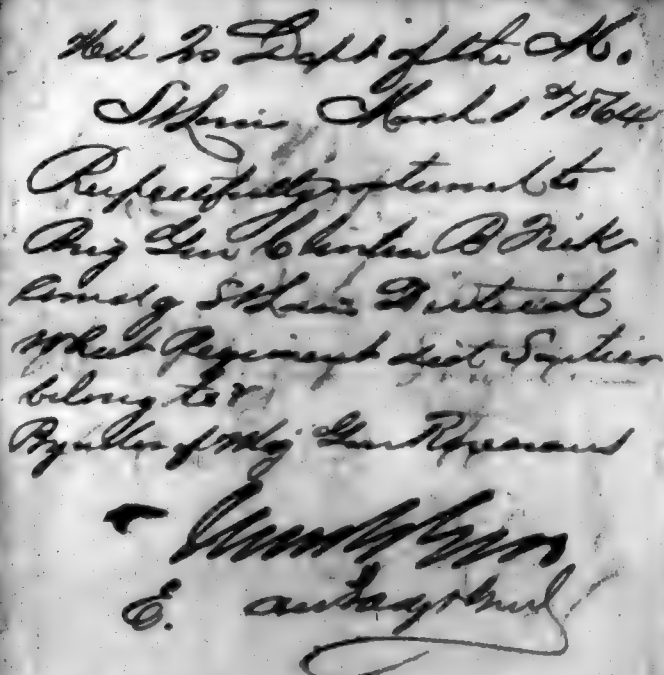 Hd Qrs Dept of the M.
St Louis March 1st 1864.
Respectfully returned to
Brig Gen Clinton B Fisk
Comdg St Louis District
What Regiment did
belong to?
By order of Maj Gen Rosecrans
E. Asst Adjt Genl